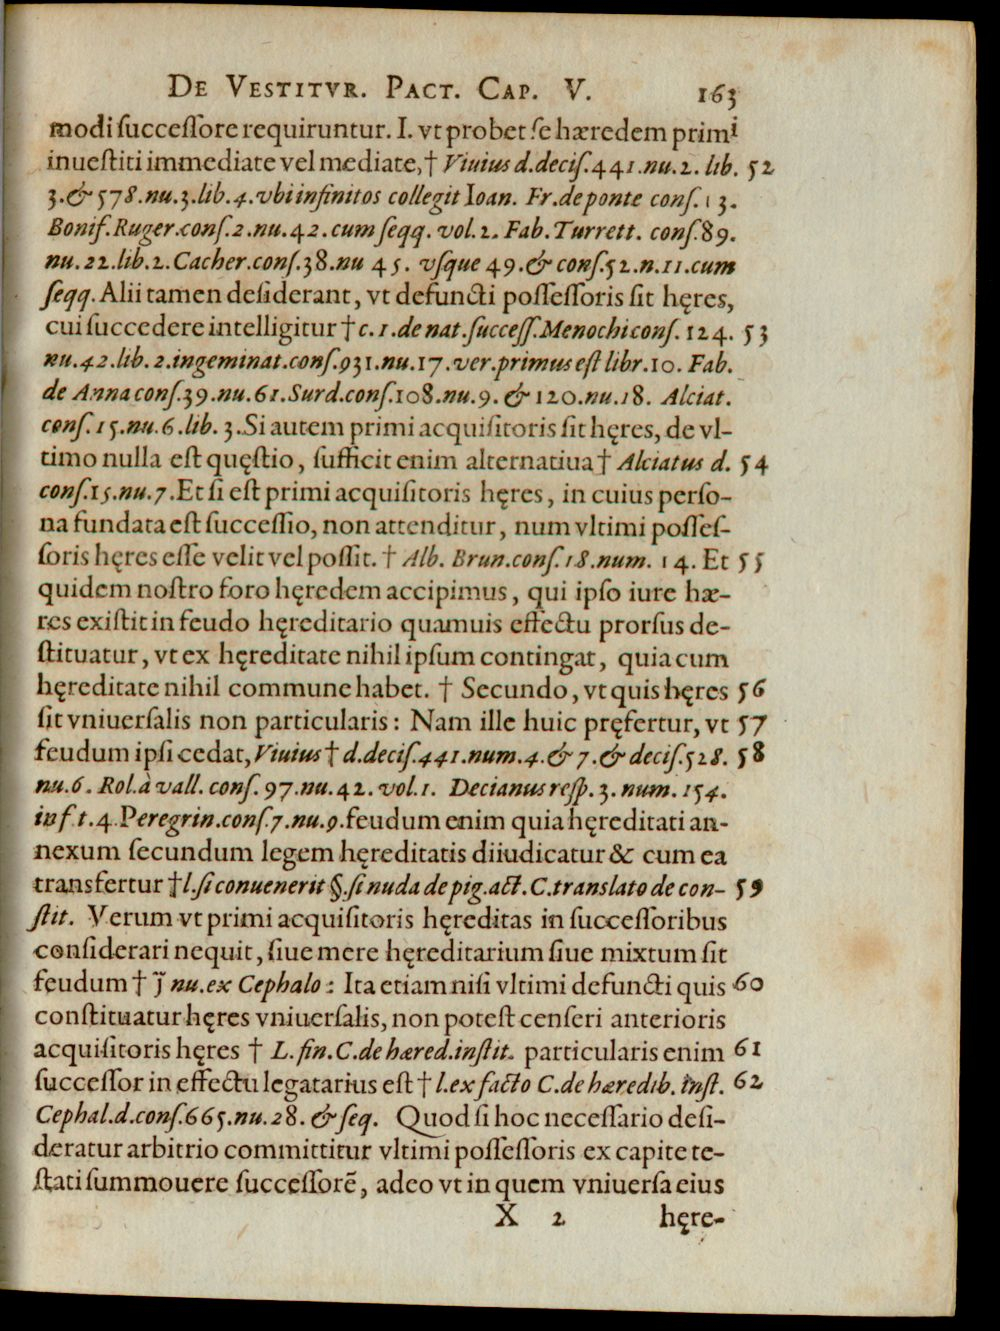 DE VESTITVR. PACT. CAP. V. 163
modi ſucceſſore requiruntur. I. vt probet ſe hæredem primi
inueſtiti immediate vel mediate, † Viuius d. deciſ. 441. nu. 2. lib. 52
3. & 578. nu. 3. lib. 4. vbi infinitos collegit Ioan. Fr. de ponte conſ. 13.
Boniſ. Ruger. conſ. 2. nu. 42. cum ſeqq. vol. 2. Fab. Turrett. conſ. 89.
nu. 22. lib. 2. Cacher. conſ. 38. nu 45. vſque 49. & conſ. 52. n. 11. cum
ſeqq. Alii tamen deſiderant, vt defuncti poſſeſſoris ſit hęres,
cui ſuccedere intelligitur † c. 1. de nat. ſucceſſ. Menochi conſ. 124. 53
nu. 42. lib. 2. ingeminat. conſ. 931. nu. 17. ver. primus eſt libr. 10. Fab.
de Anna conſ. 39. nu. 61. Surd. conſ. 108. nu. 9. & 120. nu. 18. Alciat.
conſ. 15. nu. 6. lib. 3. Si autem primi acquiſitoris ſit hęres, de vl-
timo nulla eſt quęſtio, ſufficit enim alternatiua † Alciatus d. 54
conſ. 15. nu. 7. Et ſi eſt primi acquiſitoris hęres, in cuius perſo-
na fundata eſt ſucceſſio, non attenditur, num vltimi poſſeſ-
ſoris hęres eſſe velit vel poſſit. † Alb. Brun. conſ. 18. num. 14. Et 55
quidem noſtro foro hęredem accipimus, qui ipſo iure hæ-
res exiſtit in feudo hęreditario quamuis effectu prorſus de-
ſtituatur, vt ex hęreditate nihil ipſum contingat, quia cum
hęreditate nihil commune habet. † Secundo, vt quis hęres 56
ſit vniuerſalis non particularis: Nam ille huic pręfertur, vt 57
feudum ipſi cedat, Viuius † d. deciſ. 441. num. 4. & 7. & deciſ. 528. 58
nu. 6. Rol. à vall. conſ. 97. nu. 42. vol. 1. Decianus reſp. 3. num. 154.
inf t. 4. Peregrin. conſ. 7. nu. 9. feudum enim quia hęreditati an-
nexum ſecundum legem hęreditatis diiudicatur & cum ea
transfertur † l. ſi conuenerit §. ſi nuda de pig. act. C. translato de con- 59
ſtit. Verum vt primi acquiſitoris hęreditas in ſucceſſoribus
conſiderari nequit, ſiue mere hęreditarium ſiue mixtum ſit
feudum † j̄ nu. ex Cephalo: Ita etiam niſi vltimi defuncti quis 60
conſtituatur hęres vniuerſalis, non poteſt cenſeri anterioris
acquiſitoris hęres † L. fin. C. de hæred. inſtit. particularis enim 61
ſucceſſor in effectu legatarius eſt † l. ex facto C. de hæredib. inſt. 62
Cephal. d. conſ. 665. nu. 28. & ſeq. Quod ſi hoc neceſſario deſi-
deratur arbitrio committitur vltimi poſſeſſoris ex capite te-
ſtati ſummouere ſucceſſorē, adeo vt in quem vniuerſa eius
X 2 hęre-